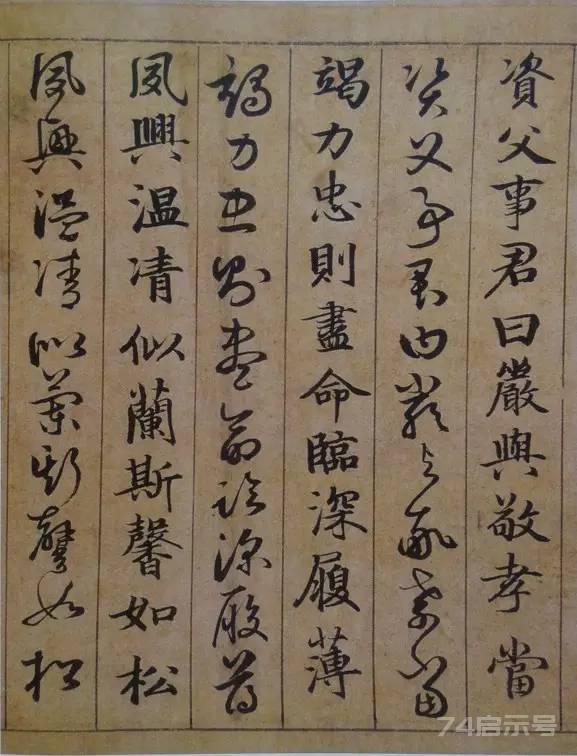 資父事君曰嚴與敬孝當
資父事君曰嚴與敬孝當
竭力忠則盡命臨深履薄
竭力忠則盡命臨深履薄
夙興温凊似蘭斯馨如松
夙興温凊似蘭斯馨如松
74启示号